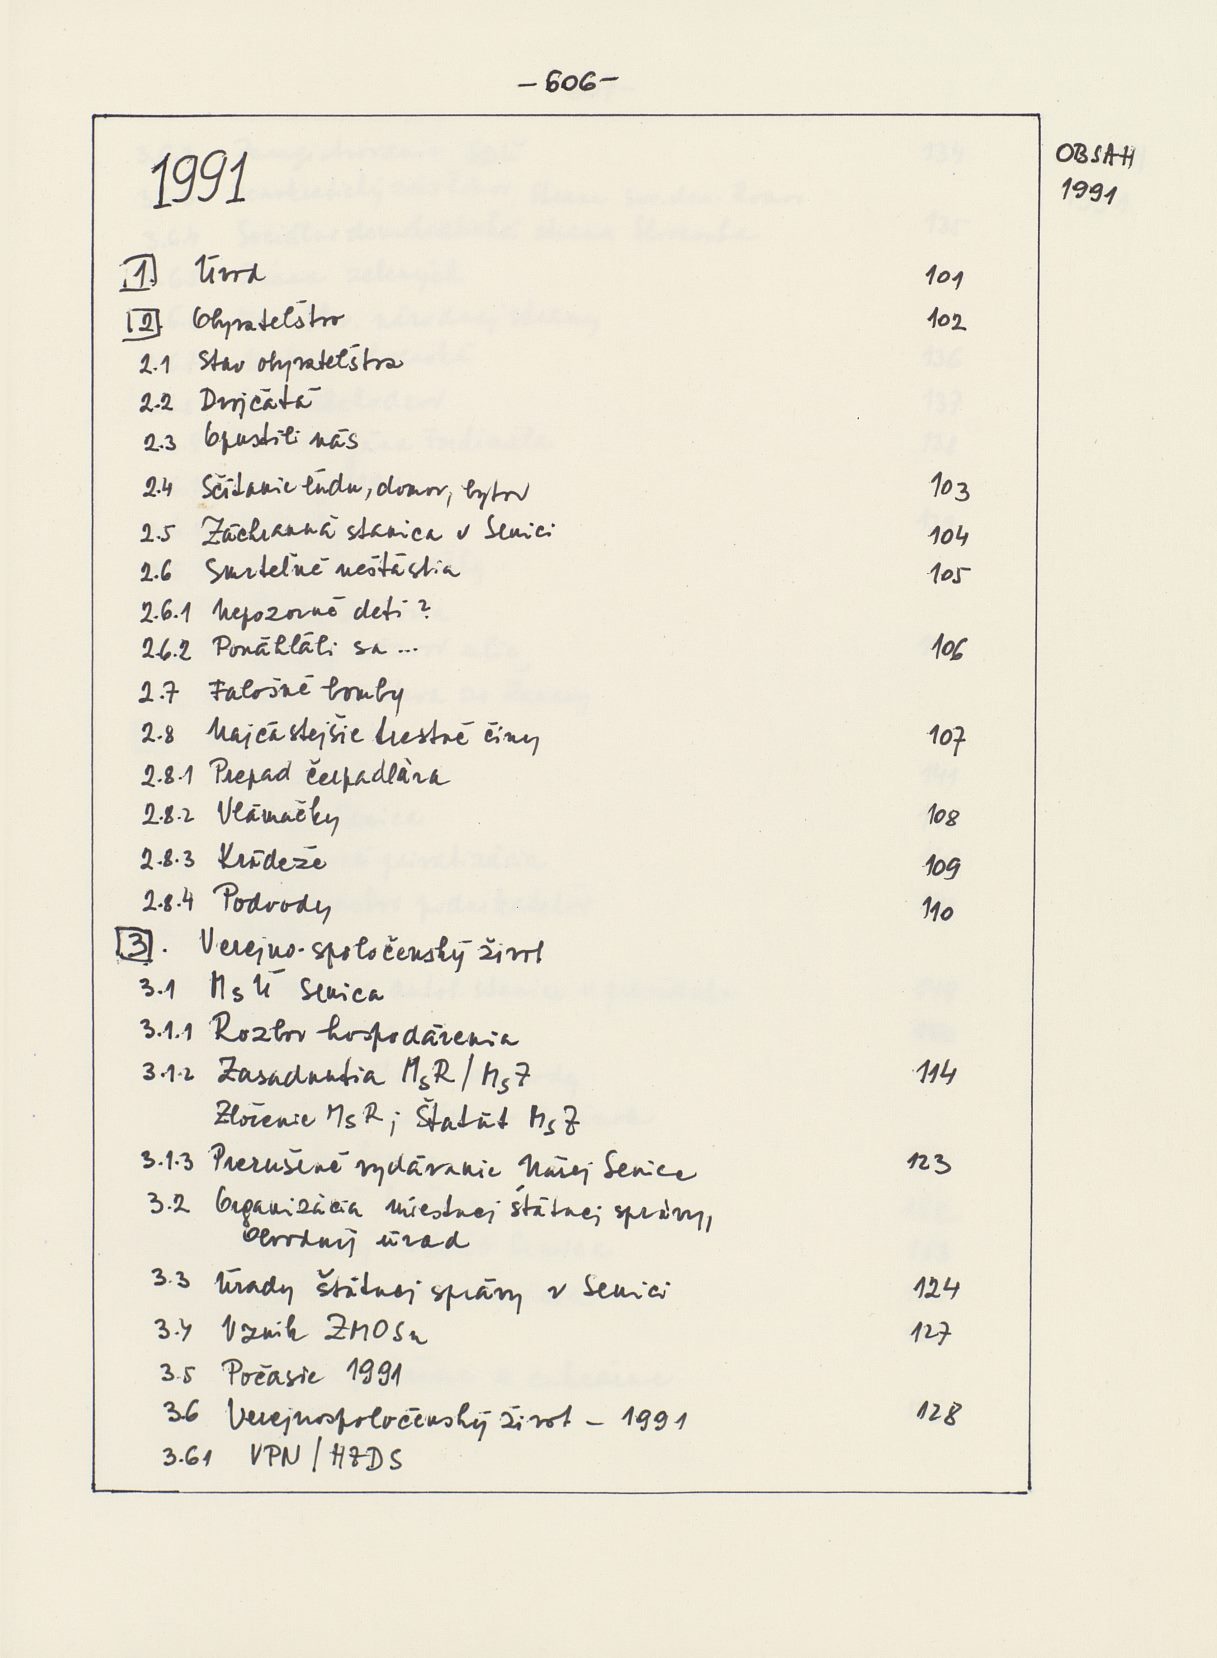 -606-
OBSAH
1991
1991
1. Úvod 101
2. Obyvateľstvo 102
2.1 Stav obyvateľstva
2.2 Dvojčatá
2.3 Opustili nás
2.4 Sčítanie ľudu, domov, bytov 103
2.5 Záchranná stanica v Senici 104
2.6 Smrteľné nešťastia 105
2.6.1 Nepozorné deti?
2.6.2 Ponáhľali sa... 106
2.7 Falošné bomby
2.8 Najčastejšie trestné činy 107
2.8.1 Prepad čerpadlára
2.8.2 Vlámačky 108
2.8.3 Krádeže 109
2.8.4 Podvody 110
3. Verejno-spoločenský život
3.1 MsÚ Senica
3.1.1 Rozbor hospodárenia
3.1.2 Zasadnutia MsR/MsZ 114
Zloženie MsR; Štatút MsZ
3.1.3 Prerušené vydávanie Našej Senice 123
3.2 Organizácia miestnej štátnej správy,
Obvodný úrad
3.3 Úrady štátnej správy v Senici 124
3.4 Vznik ZMOSu 127
3.5 Počasie 1991
3.6 Verejnospoločenský život - 1991 128
3.61 VPN/HZDS